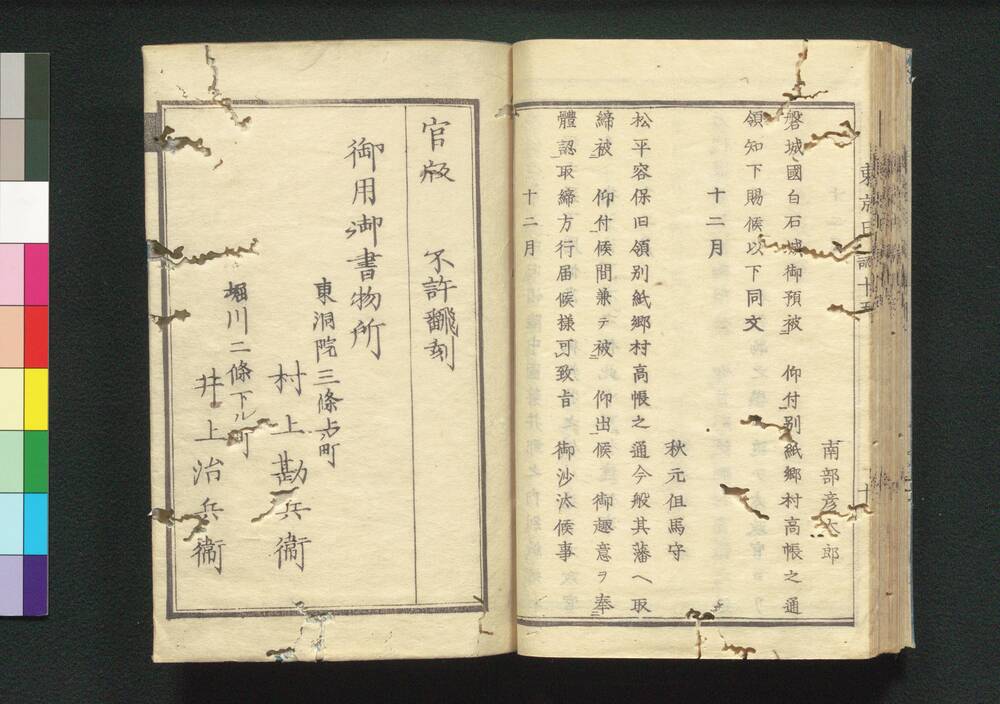 南部彦太郎
磐城國白石城御預被　仰付別紙郷村高帳之通
領知下賜候以下同文
十二月
秋元但馬守
松平容保旧領別紙郷村高帳之通今般其藩ヘ取
締被　仰付候間兼テ被　仰出候　御趣意ヲ奉
體認取締方行届候様可致旨　御沙汰候事
十二月
官版　不許翻刻
御用御書物所
東洞院三條上町
村上勘兵衞
堀川二條下ル町
井上治兵衞